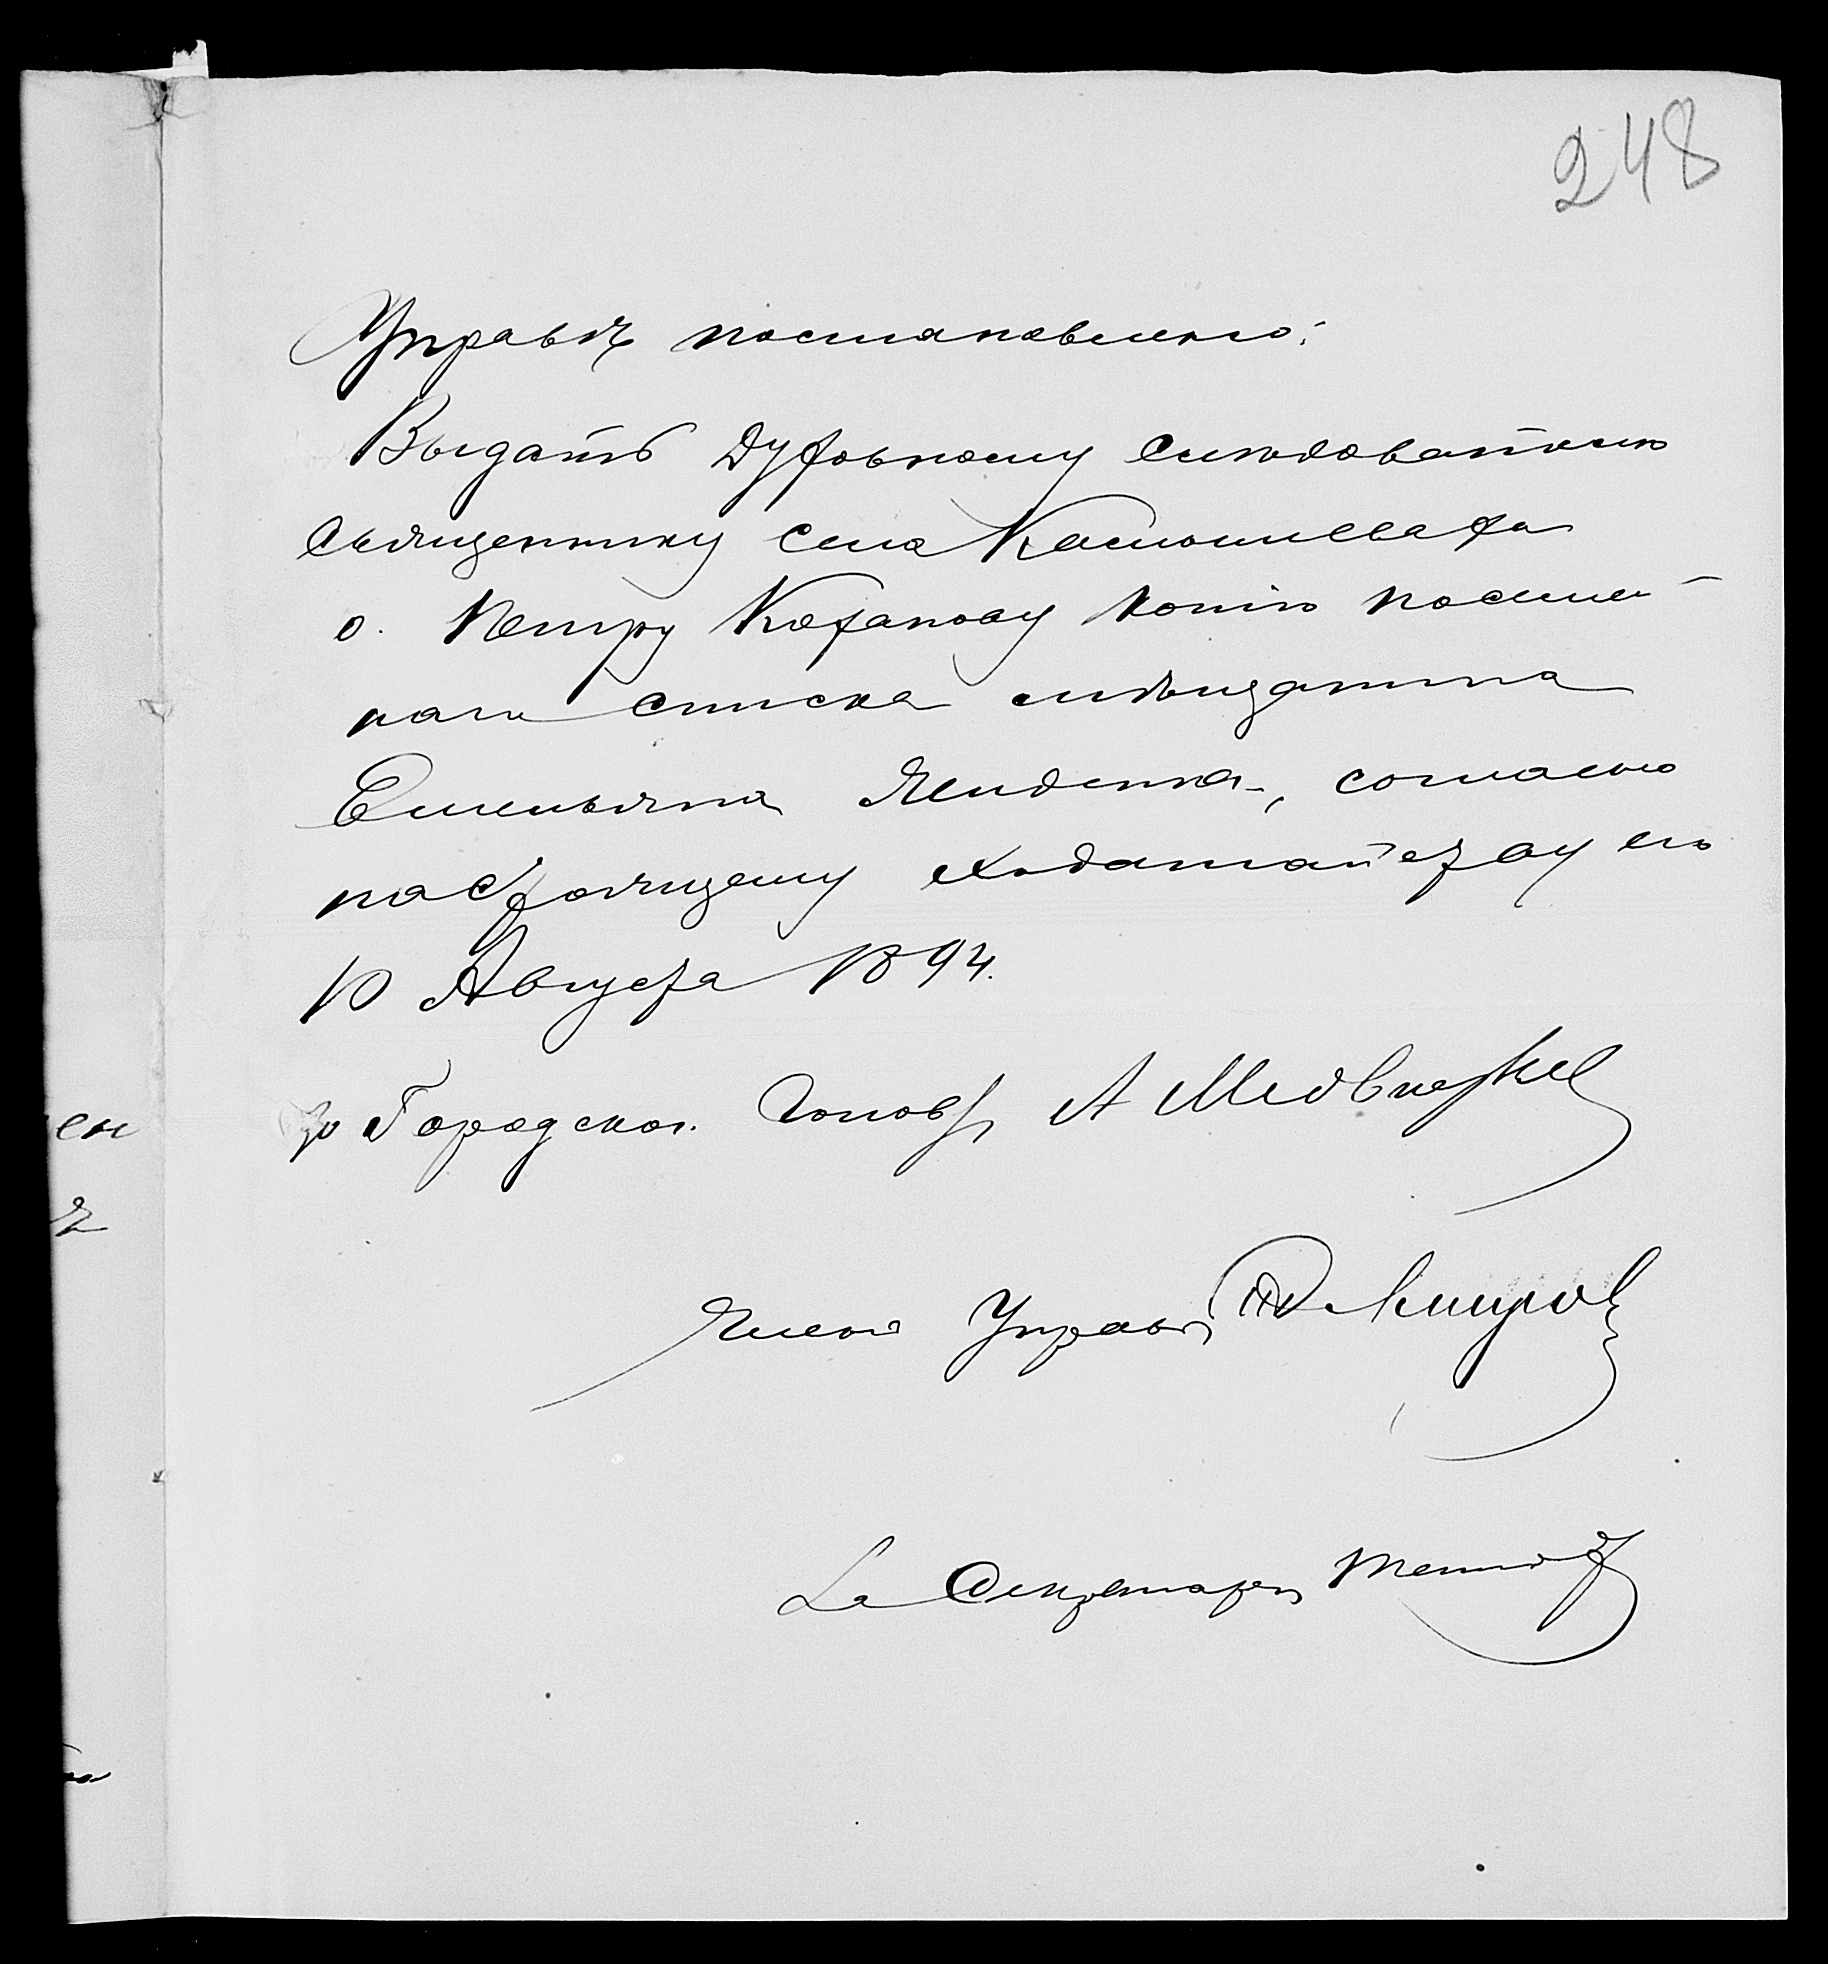 248
Управѣ постановлено:
Выдать Духовному слѣдователю
священнику села Камышеваха
о. Петру Коханову копію посемей-
наго списка мѣщанина
Емельяна Лиденка, согласно
настоящему ходатайству его
10 Августа 1894.
За Городского Голову А Медв
Членъ Управы
За Секретаря